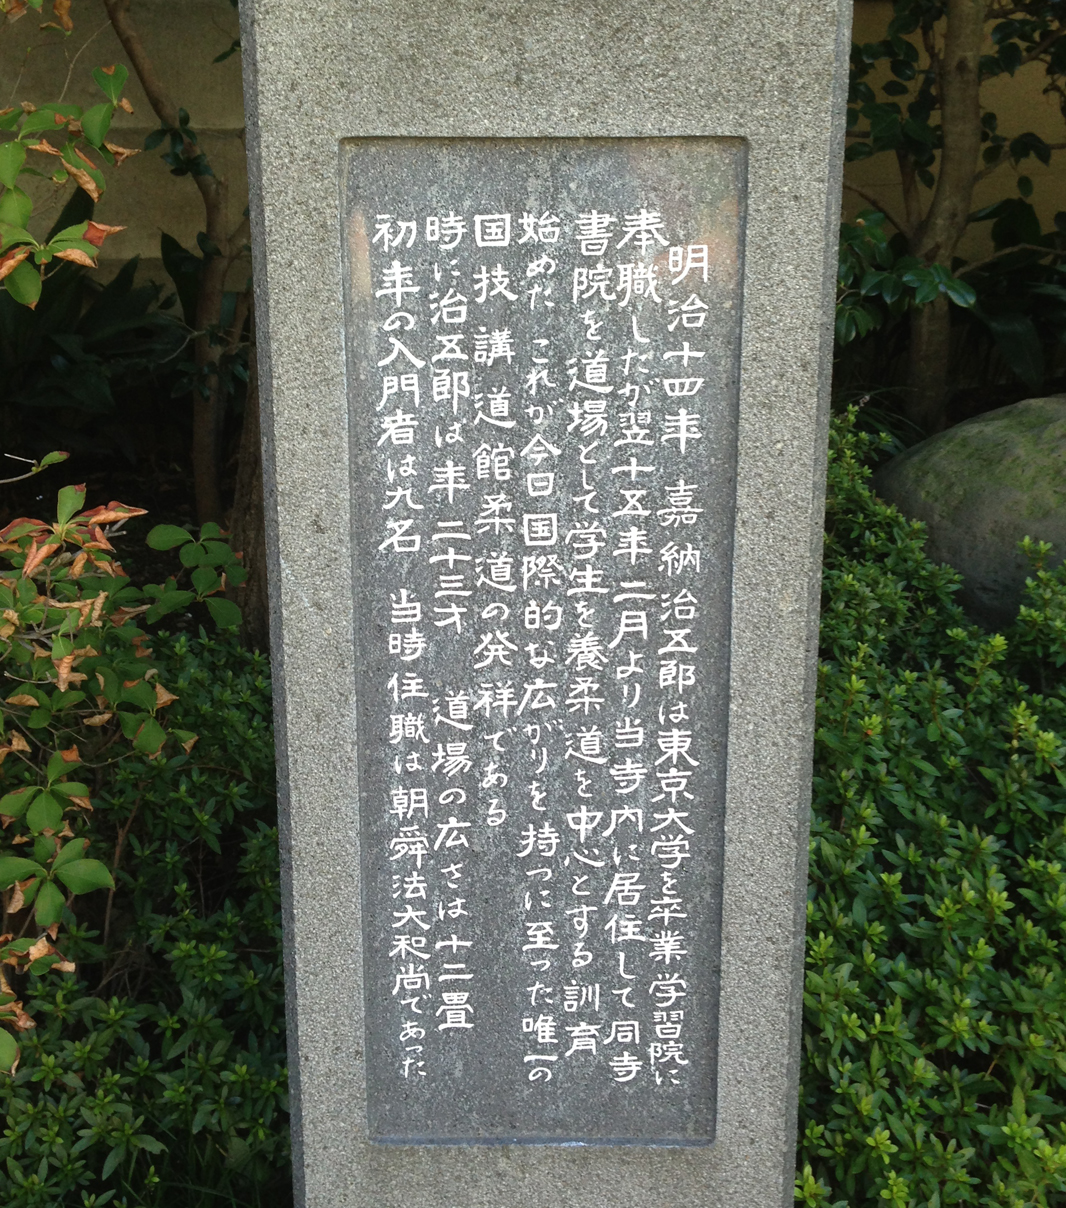 明治十四年 嘉納治五郎は東京大学を卒業学習院に
奉職したが翌十五年二月より当寺内に居住して同寺
書院を道場として学生を養柔道を中心とする訓育
始めた これが今日国際的な広がりを持つに至った唯一の
国技講道館柔道の発祥である
時に治五郎は年二十三才 道場の広さは十二畳
初年の入門者は九名 当時住職は朝舜法大和尚であった